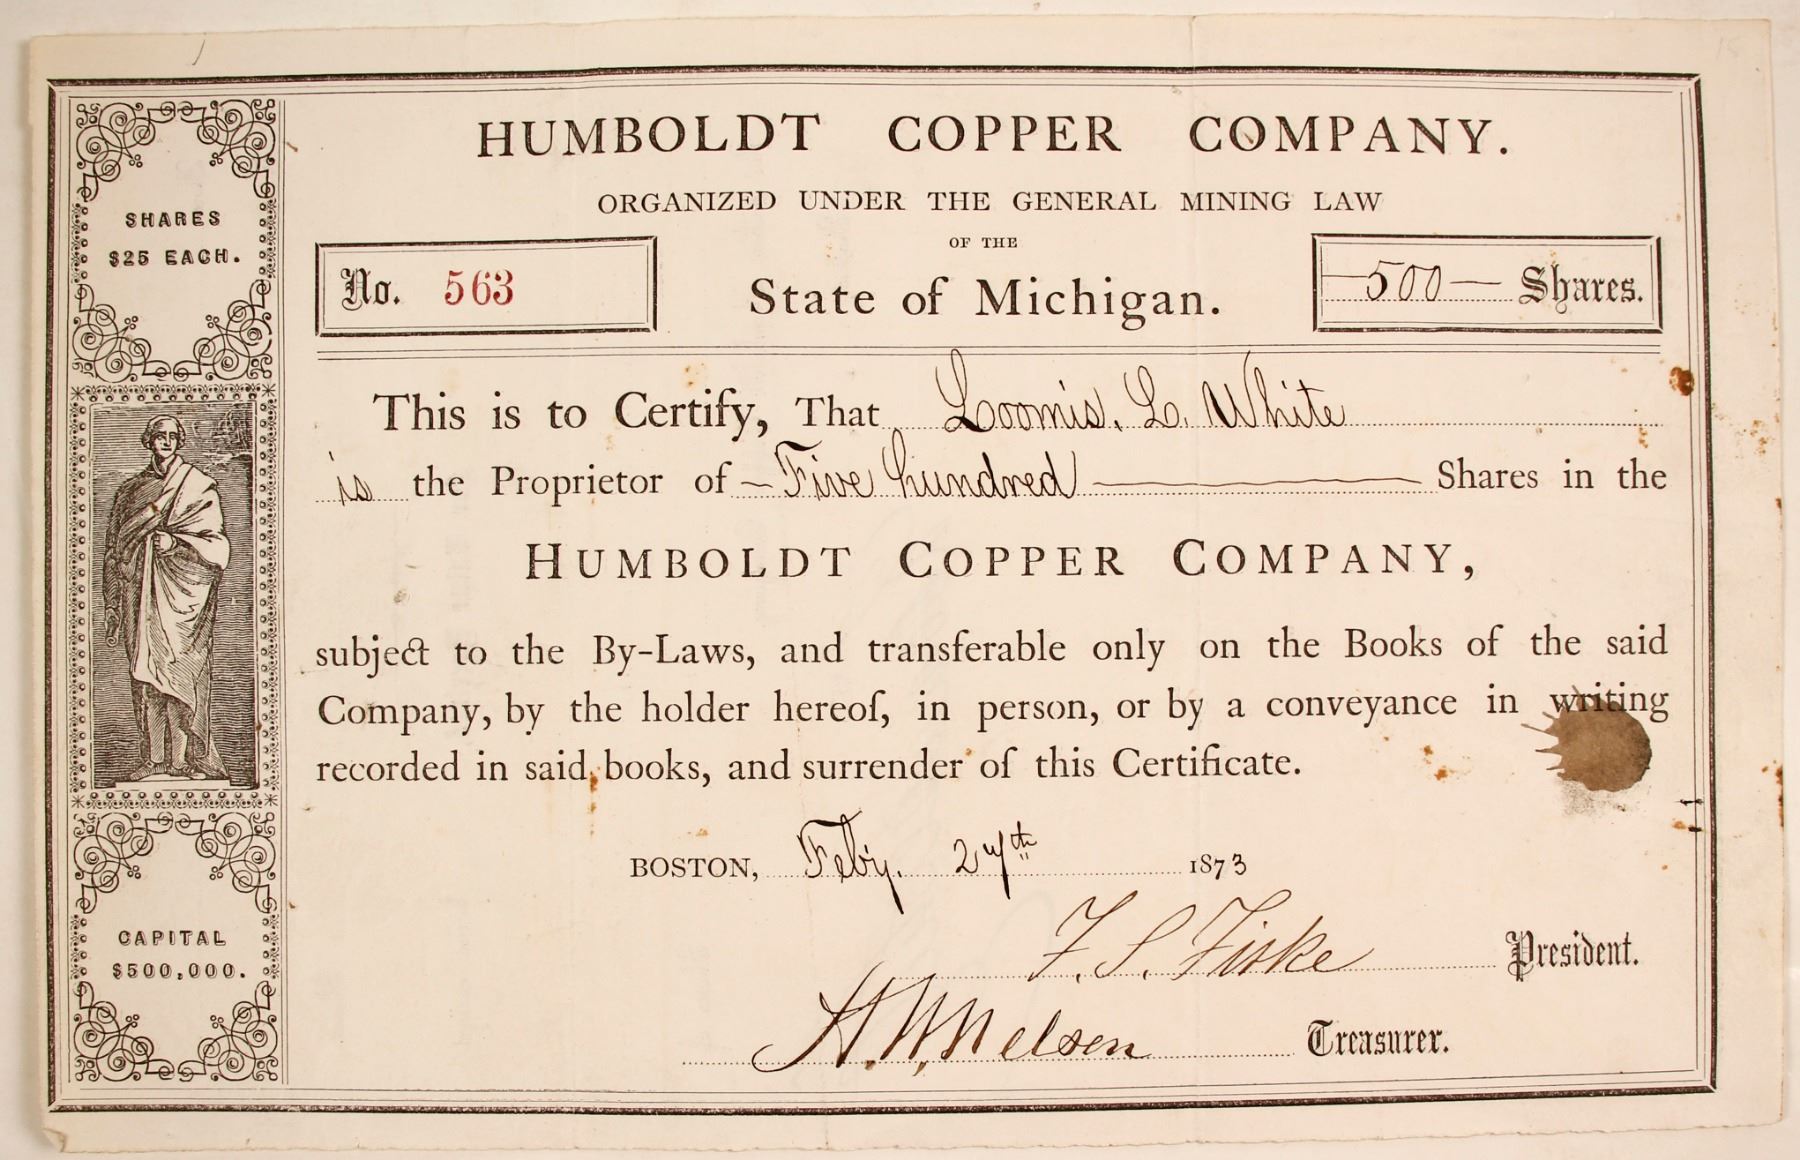 HUMBOLDT COPPER COMPANY.
ORGANIZED UNDER THE GENERAL MINING LAW
OF THE
State of Michigan.
No. 563
500 Shares.
SHARES
$25 EACH.
This is to Certify, That Loomis. L. White
is the Proprietor of Five hundred Shares in the
HUMBOLDT COPPER COMPANY,
subject to the By-Laws, and transferable only on the Books of the said
Company, by the holder hereof, in person, or by a conveyance in writing
recorded in said books, and surrender of this Certificate.
BOSTON, Feby. 27th 1873
F. S. Fiske President.
H. W. Nelson Treasurer.
CAPITAL
$500,000.